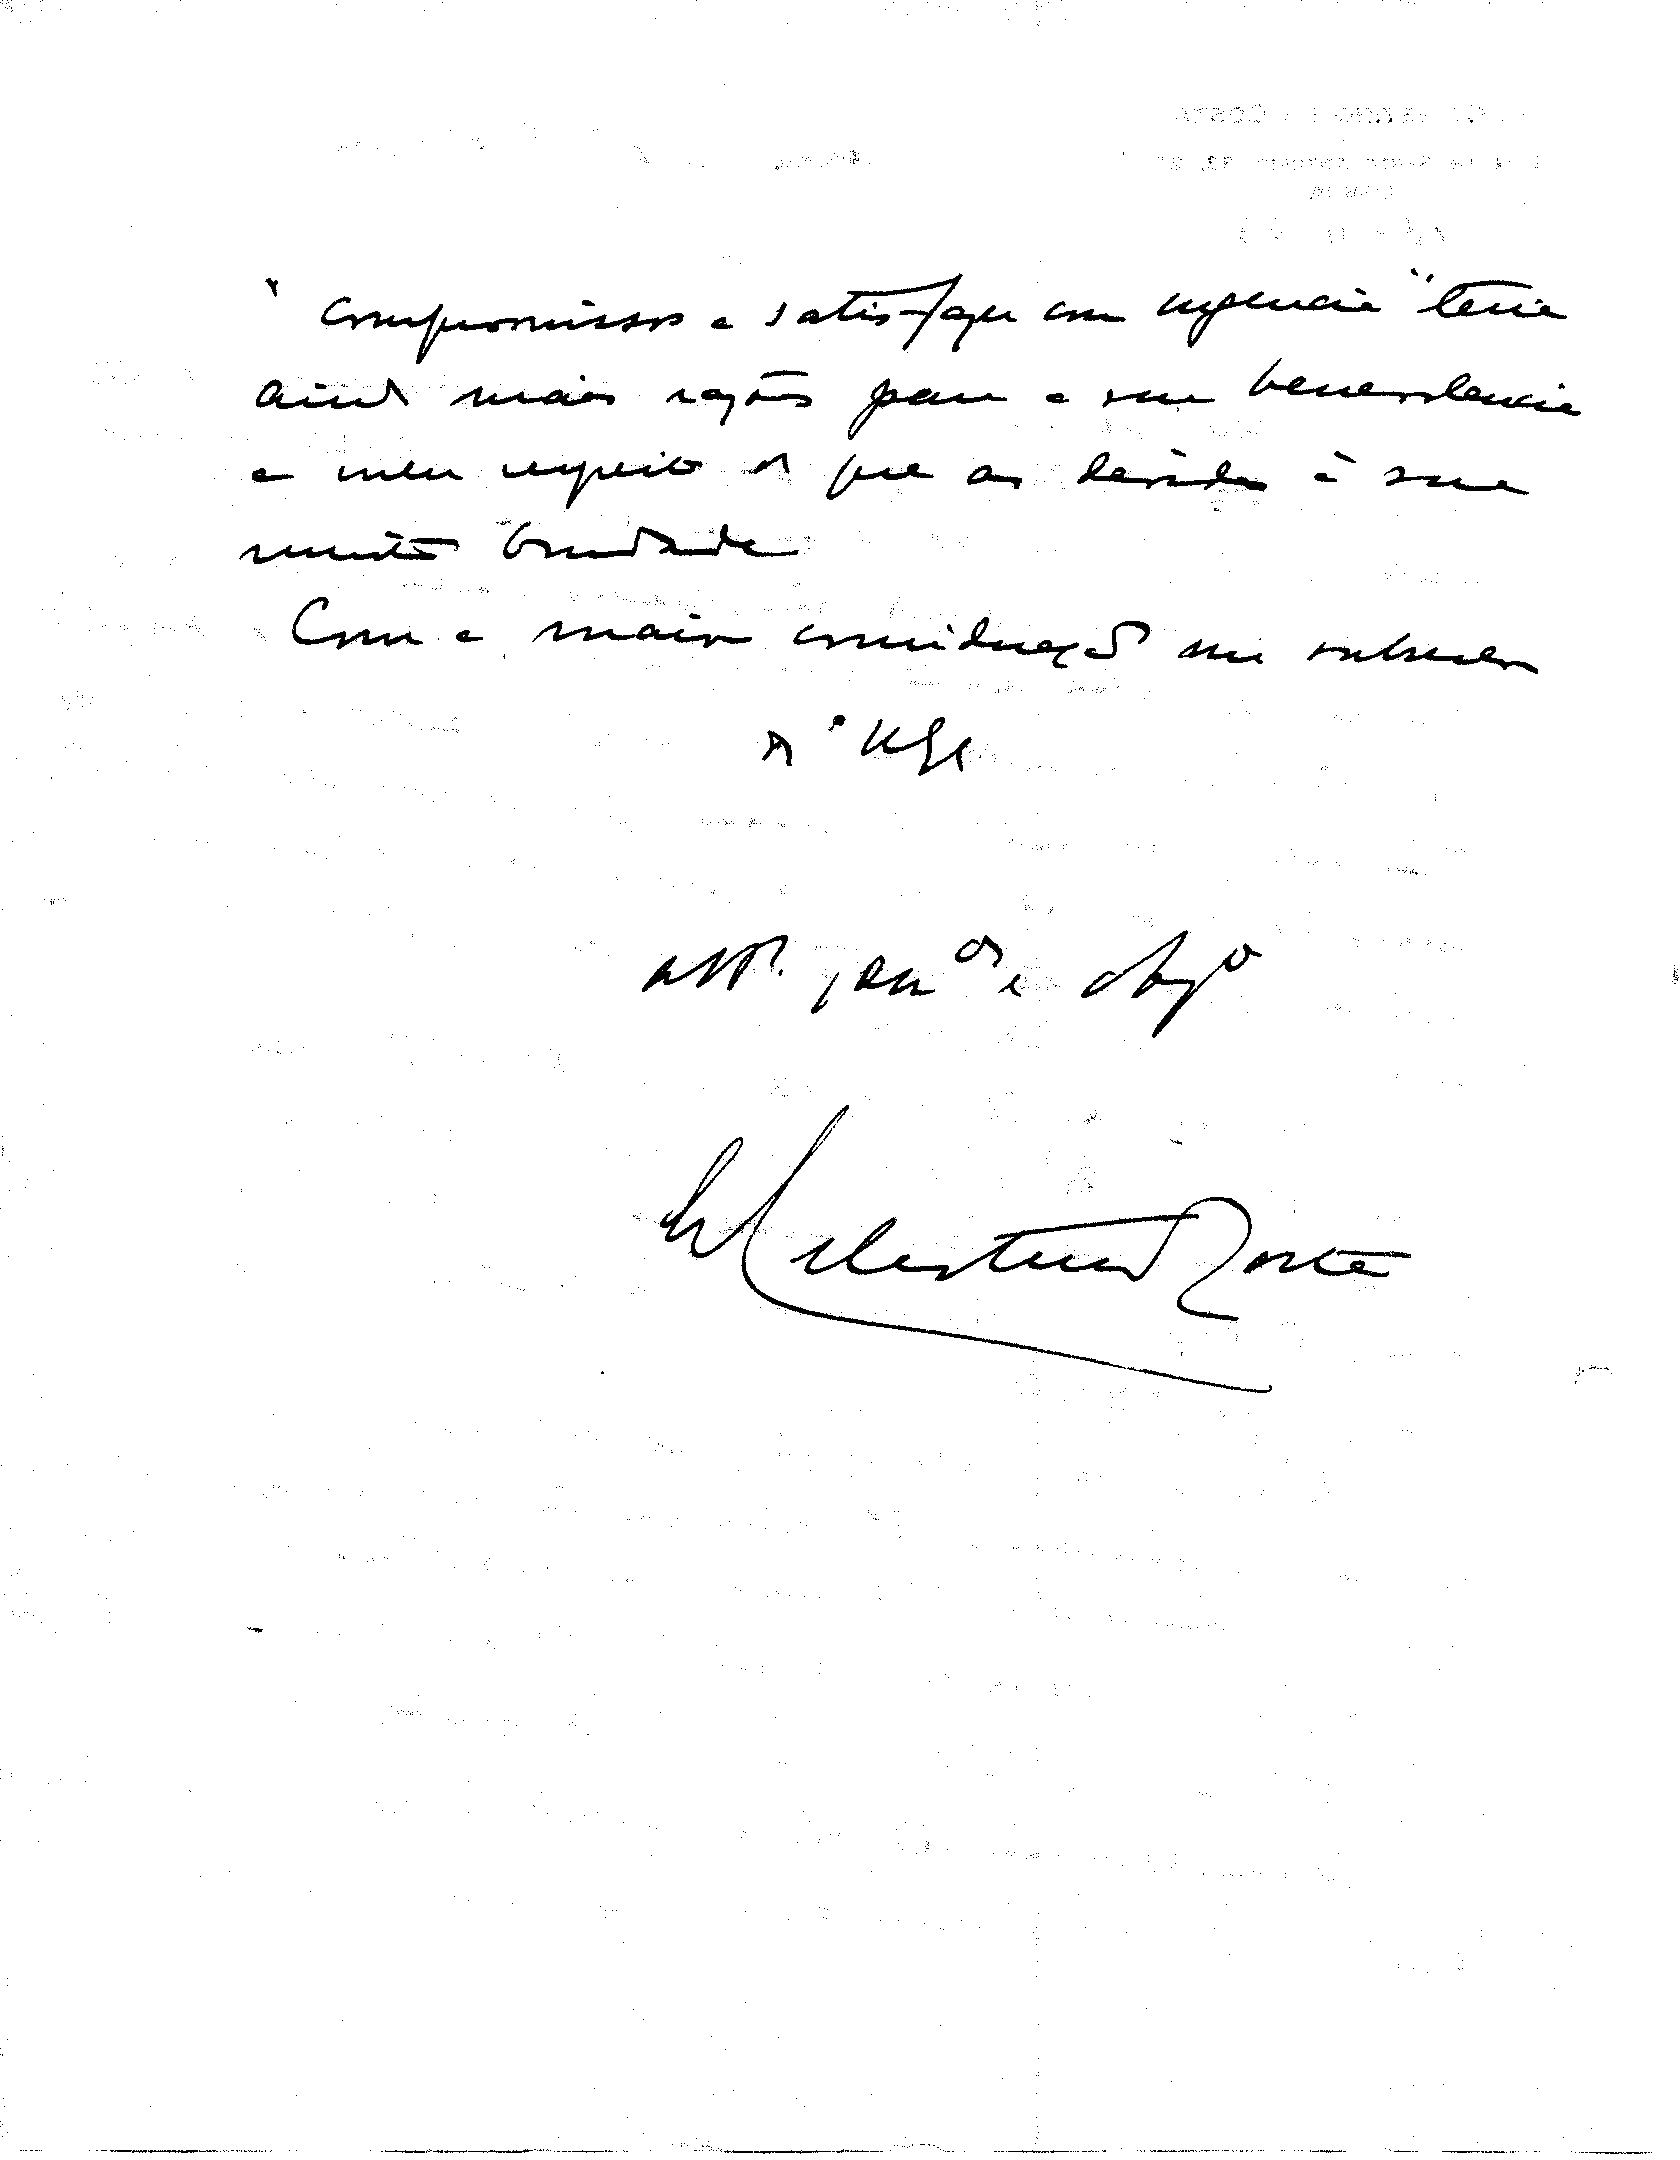 " compromissos a satisfazer com urgencia " teria
ainda mais razões para a sua benevolencia
a meu respeito do que as devidas à sua
muita bondade
Com a maior consideração me subscrevo
de V. Exª
attº e obgº
Celestino Costa